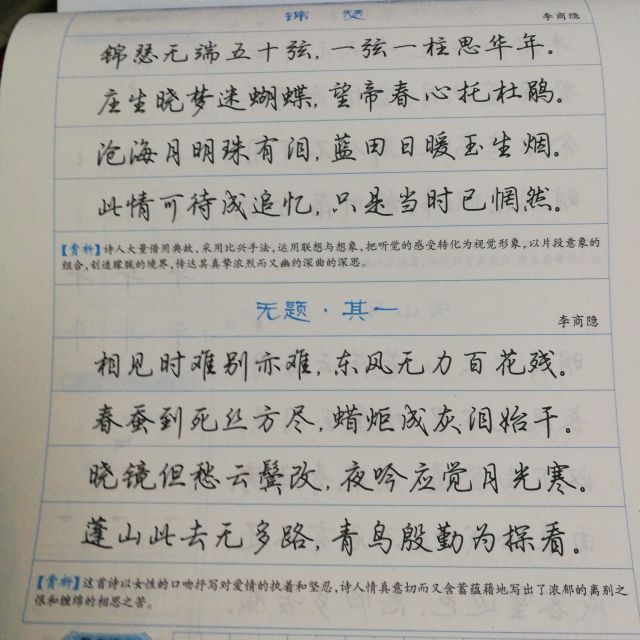 锦 瑟
李商隐
锦瑟无端五十弦,一弦一柱思华年。
庄生晓梦迷蝴蝶,望帝春心托杜鹃。
沧海月明珠有泪,蓝田日暖玉生烟。
此情可待成追忆,只是当时已惘然。
【赏析】诗人大量借用典故,采用比兴手法,运用联想与想象,把听觉的感受转化为视觉形象,以片段意象的
组合,创造朦胧的境界,传达其真挚浓烈而又幽约深曲的深思。
无题·其一
李商隐
相见时难别亦难,东风无力百花残。
春蚕到死丝方尽,蜡炬成灰泪始干。
晓镜但愁云鬓改,夜吟应觉月光寒。
蓬山此去无多路,青鸟殷勤为探看。
【赏析】这首诗以女性的口吻抒写对爱情的执着和坚忍,诗人情真意切而又含蓄蕴藉地写出了浓郁的离别之
恨和缠绵的相思之苦。